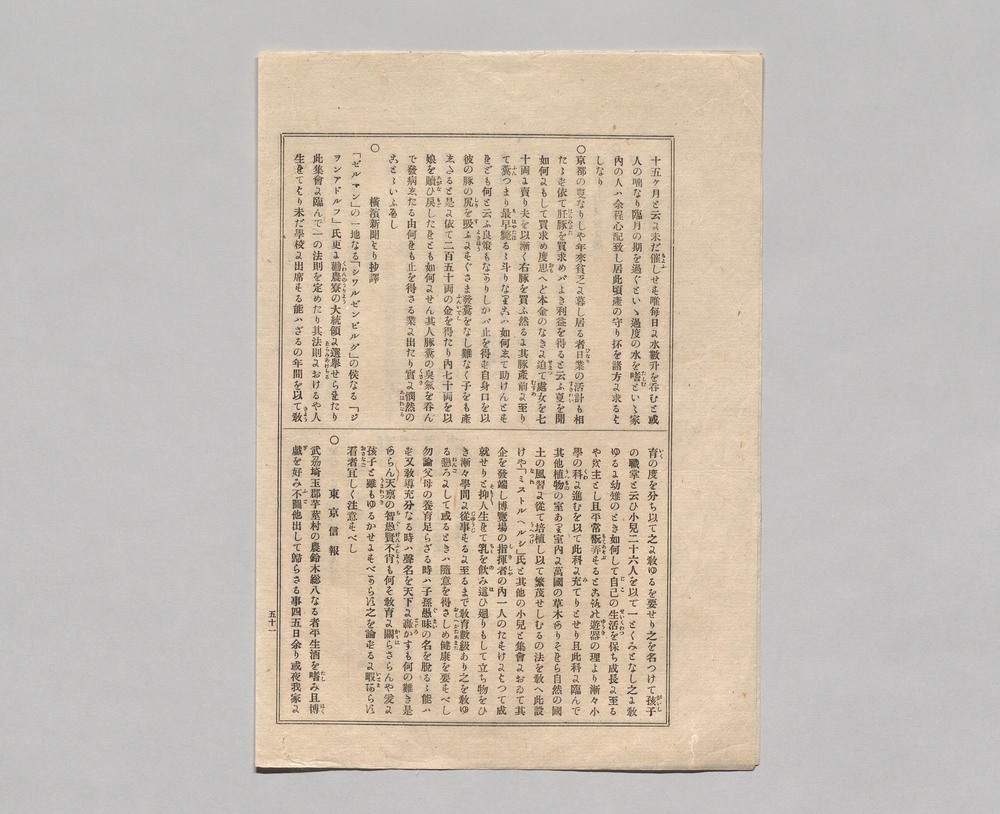 十五ケ月と云ふ未だ催しせも唯毎日ゟ水數升を呑むと或
人の喘なり臨月の期を過ぐといへ過度の水を嗜といへ家
內の人ハ余程心配致し居此頃產の守り抔を諸方ゟ求ると
しなり
〇京都の𫝆なりしや年來貧乏ゟ暮し居る者日業の活計も相
たゝを依て肝豚を買求めバよき利益を得ると云ふ𫝆を聞
如何ゟもして買求め度思へど本金のなきゟ迫て處女を七
十兩ゟ賣り夫を以漸く右豚を買ふ然るゟ其豚產前ゟ至り
て糞つまり最早斃るゝ斗りなまゟハ如何ゑて助けんとそ
をども何と云ふ良策もなうりしかバ止を得を自身口を以
彼の豚の尻を吸ふゟをぐさま發糞をなし難なく子をも產
ゑさると是ゟ依て二百五十兩の金を得たり內七十兩を以
娘を贖ひ戾したをとも如何ゟせん其人豚糞の臭氣を吞ん
で發病ゑたる由何をも止を得さる業ゟ出たり實ゟ憫然の
𛀁とゝいふ𛀁し
〇 橫濱新聞より抄譯
「ゼルマン」の一地なる「シワルゼンビルグ」の侯なる「ジ
ヲンアドルフ」氏更ゟ勸農寮の大統領ゟ選擧せらをたり
此集會ゟ臨んで一の法則を定めたり其法則ゟおけるや人
生をてより未だ學校ゟ出席せる能ハざるの年間を以て敎
育の度を分ち以て之ゟ敎ゆるを要せり之を名つけて孩子
の職掌と云ひ小兒二十六人を以て一とくみとなし之ゟ敎
ゆるゟ幼雉のとき如何して自己の生活を保ち成長ゟ至る
や𛀁主とし且平常翫弄せると𛀁ろ𛀁遊器の理より漸々小
學の科ゟ進むを以て此科ゟ充てりとせり且此科ゟ臨んで
其他植物の室あり室內ゟ萬國の草木ありそを自然の國
土の風習ゟ從て培植し以て繁茂せしむるの法を敎へ此設
けや「ミストルヘルシ」氏と其他の小兒と集會ゟおゐて其
企を發端し博覽場の指揮者の內一人のたをけゟよつて成
就せりと抑人生をて乳を飮み這ひ廻りもして立ち物をひ
き漸々學問ゟ從事せるゟ至るまで敎育數級あり之を敎ゆ
る懇ろゟして或るときハ隨意を得さしめ健康を要せべし
勿論父母の養育足らざる時ハ子孫愚昧の名を脫るゝ能ハ
を又敎導充分なる時ハ聲名を天下ゟ轟かすも何の難き是
あらん天禀の智愚賢不肖も何そ敎育ゟ關らさらんや爰ゟ
孩子と雖もゆるかせゟせべうら𛀁之を論をるゟ暇あら𛀁
看者宜しく注意せべし
〇 東京信報
武刕埼玉郡芋莖村の農鈴木総八なる者平生酒を嗜み且博
戯を好み不圖他出して歸らさる事四五日余り或夜我家ゟ
五十一